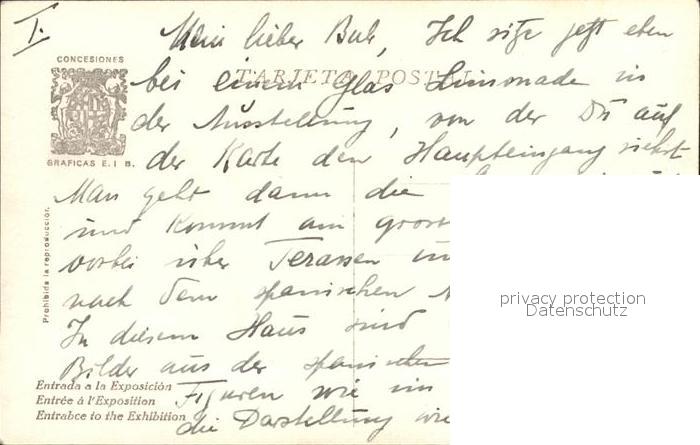 I.
Mein lieber Bub, Ich sitze jetzt eben
CONCESIONES
TARJETA POSTAL
bei einem Glas Limonade in
der Ausstellung, von der Du auf
GRAFICAS E. I B.
der Karte den Haupteingang siehst
Man geht dann die
und kommt am gross
vorbei über Terassen
nach dem spanischen
In diesem Haus sind
Bilder aus der spanischen
Figuren wie im
die Darstellung wie
Prohibida la reproducción.
Entrada a la Exposición
Entrée á l'Exposition
Entrabce to the Exhibition
privacy protection
Datenschutz